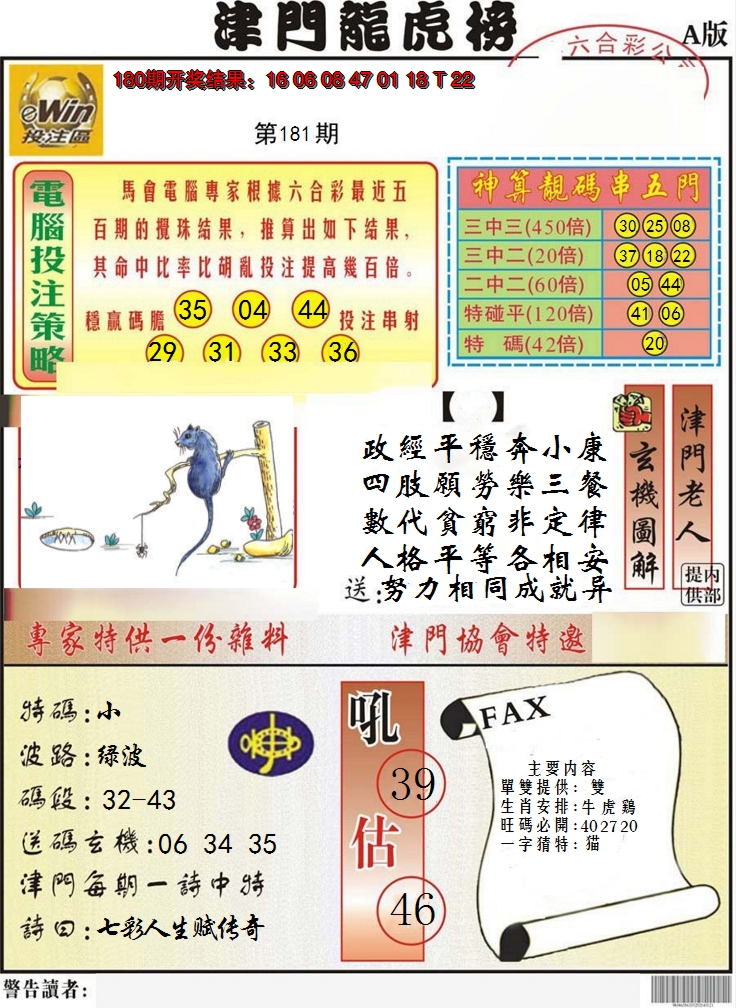 津門龍虎榜
A版
六合彩公
eWin
投注區
180期开奖结果：16 06 08 47 01 18 T 22
第181期
電腦投注策略
馬會電腦專家根據六合彩最近五
百期的攪珠结果，推算出如下结果，
其命中比率比胡亂投注提高幾百倍。
穩贏碼膽 35 04 44 投注串射
29 31 33 36
神算靚碼串五門
三中三(450倍) 30 25 08
三中二(20倍) 37 18 22
二中二(60倍) 05 44
特碰平(120倍) 41 06
特 碼(42倍) 20
【 】
政經平穩奔小康
四肢願勞樂三餐
數代貧窮非定律
人格平等各相安
送:努力相同成就异
玄機圖解
津門老人
内部提供
專家特供一份雜料
津門協會特邀
特碼:小
波路:绿波
碼段:32-43
送碼玄機:06 34 35
津門每期一詩中特
詩曰:七彩人生赋传奇
吼
39
估
46
FAX
主要内容
單雙提供：雙
生肖安排:牛虎鷄
旺碼必開:402720
一字猜特：猫
警告讀者: